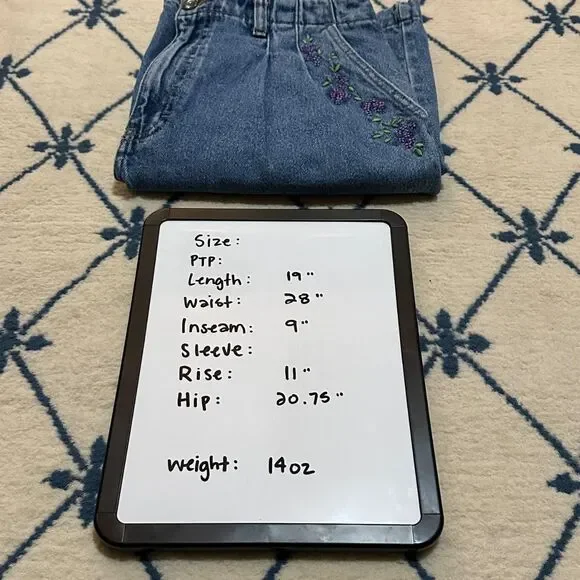 Size:
PTP:
Length: 19"
Waist: 28"
Inseam: 9"
Sleeve:
Rise: 11"
Hip: 20.75"
Weight: 14oz